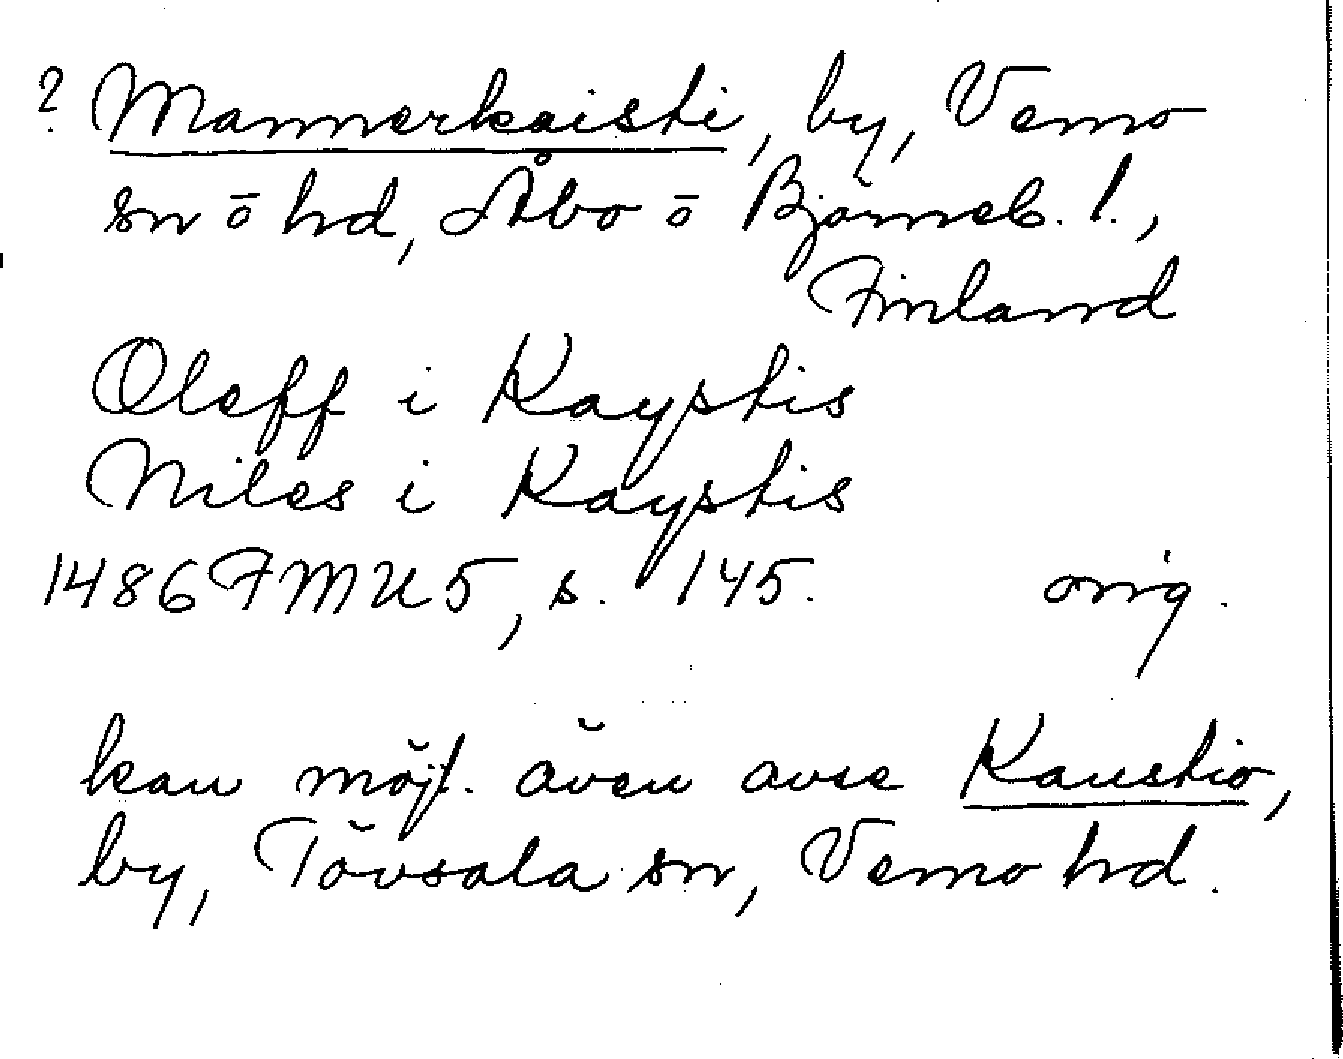 ? Mannerkaisti, by, Vemo
sn ō hd, Åbo ō Björneb. l.,
Finland
Oleff i Kaystis
Niles i Kaystis
1486 FMU 5, s. 145. orig.
kan möjl. även avse Kaustio,
by, Tövsala sn, Vemo hd.